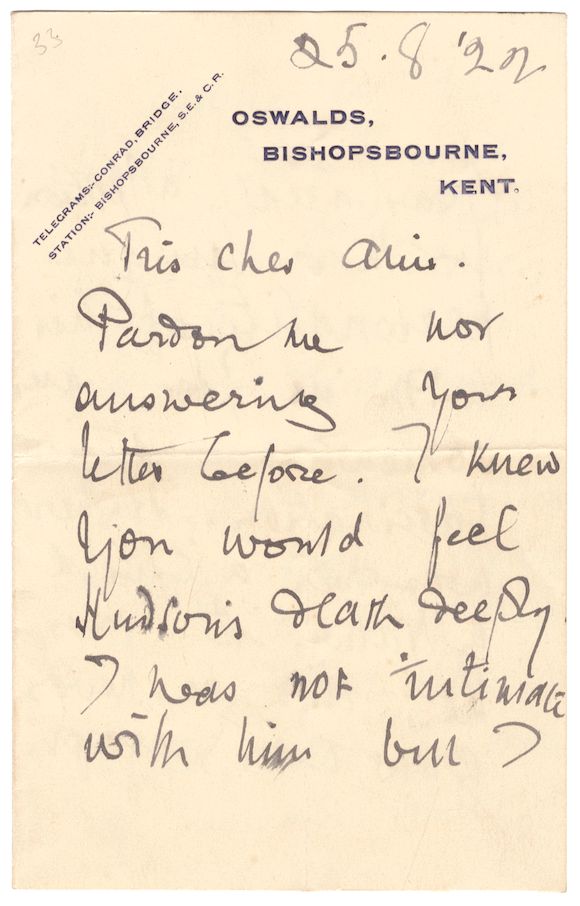 33
25.8.'22
TELEGRAMS:- CONRAD, BRIDGE.
STATION:- BISHOPSBOURNE, S.E. & C.R.
OSWALDS,
BISHOPSBOURNE,
KENT.
Très cher Ami.
Pardon me not
answering your
letter before. I knew
you would feel
Hudson's death deeply.
I was not intimate
with him but I